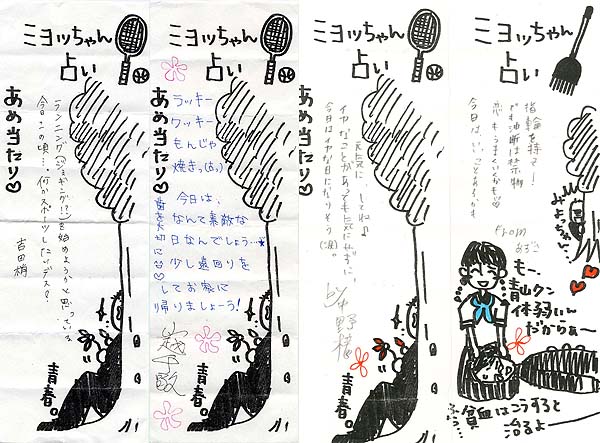 ミヨッちゃん
占い
あめ当たり♡
ランニング(ジョギング!?)を始めようかと思っている
今日この頃…。何かスポーツしたいデス!
吉田梢
青春。
ミヨッちゃん
占い
あめ当たり♡
ラッキー
クッキー
もんじゃ
焼きっ(古っ)
今日は、
なんて素敵な
日なんでしょう…
少し遠回りを
してお家に
帰りましょう!
青春。
ミヨッちゃん
占い
元気に
してね♪
イカなことがあっても気にせずに、
今日はイカな日になりそう(涙)。
by
青春。
ミヨッちゃん
占い
指輪を持て!
でも油断は禁物
恋もうまくいくかも♡
今日は、いいことあるかも
From
みよっちゃん…
もー、
青山クン
体弱いん
だからぁ〜
貧血はこうすると
治るよー